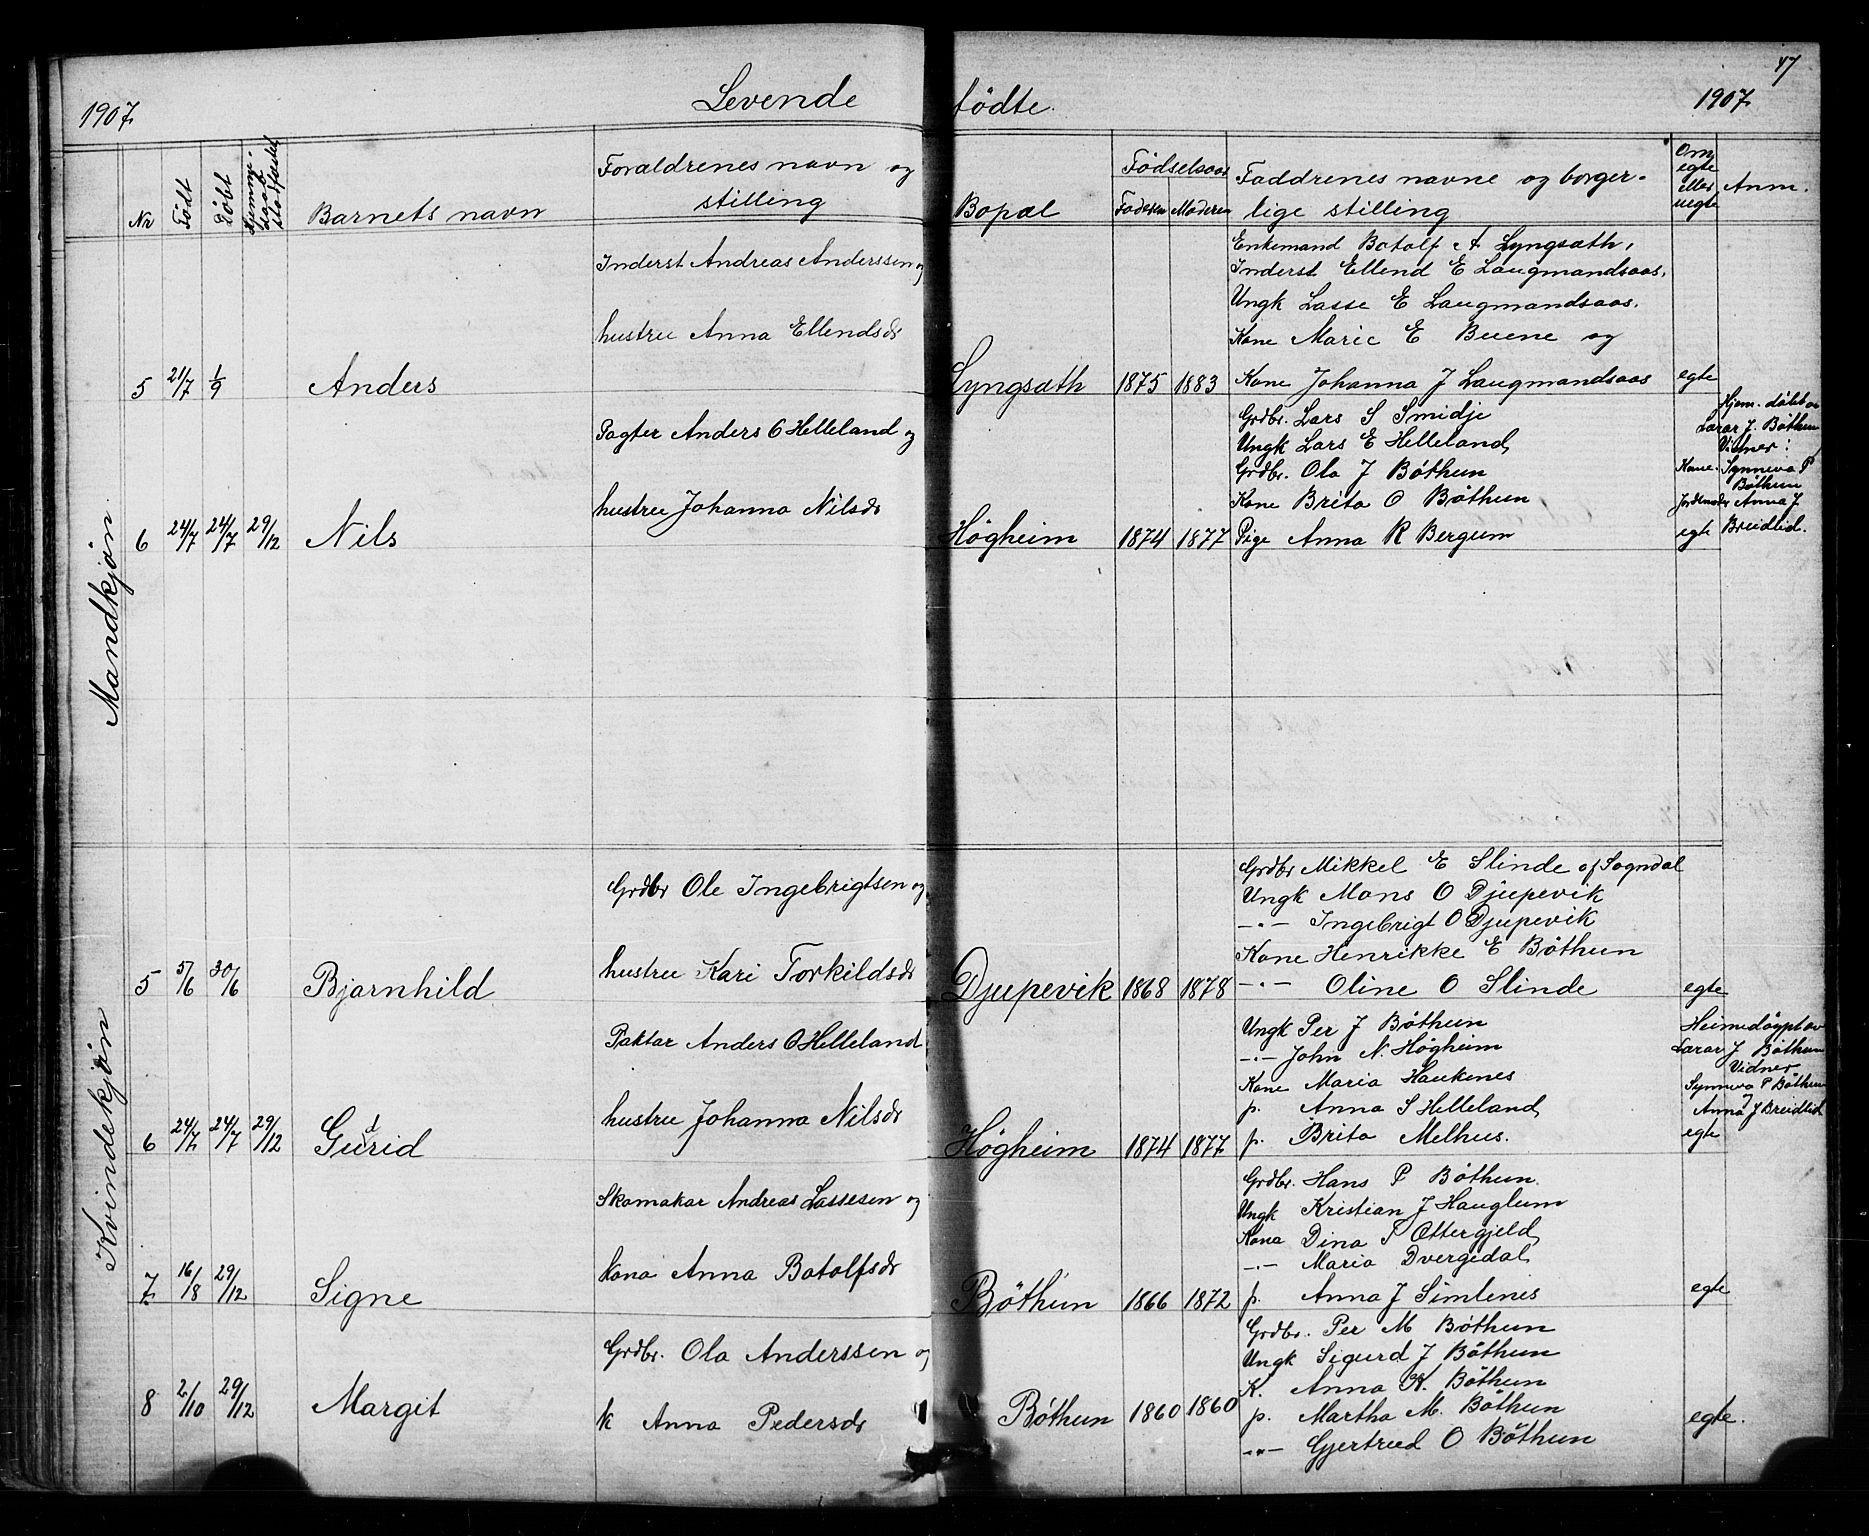 47
1907. Levende fødte. 1907.
Nr Født Døbt Hjemmedaab stadfæstet Barnets navn Forældrenes navn og stilling Bopæl Fødselsaar Faderen Moderen Faddrenes navne og borgerlige stilling Om egte eller uegte Anm.
Mandkjøn
Inderst Andreas Anderssen og
hustru Anna Ellendsdr
5 21/7 1/9 Anders Lyngsæth 1875 1883
Enkemand Botolf A Lyngsæth,
Inderst Ellend E Laugmandsaas,
Ungk Lasse E Laugmandsaas.
Kone Marie E Buene og
Kone Johanna J Laugmandsaas egte
Pagter Anders O Helleland og
hustru Johanna Nilsdr
6 24/7 24/7 29/12 Nils Högheim 1874 1877
Grdbr. Lars S Smidje
Ungk Lars E Helleland
Grdbr. Ola J Böthun
Kone Brita O Böthun
Pige Anna R Bergum egte
Hjem. døbt av
Lærar J. Böthun
Vidner:
Kone Synneva P
Böthun
Jordemoder Anna J
Breidlid.
Kvindekjøn
Grdbr Ole Ingebrigtsen og
hustru Kari Torkildsdr
5 5/6 30/6 Bjarnhild Djupevik 1868 1878
Grdbr Mikkel E Slinde af Sogndal
Ungk Mons O Djupevik
-"- Ingebrigt O Djupevik
Kone Henrikke E Böthun
-"- Oline O Slinde egte
Paktar Anders O Helleland
hustru Johanna Nilsdr
6 24/7 24/7 29/12 Gurid Högheim 1874 1877
Ungk Per J Böthun
-"- John N. Högheim
Kone Maria Haukenes
p. Anna S Helleland
p. Brita Melhus. egte
Heimedöypt av
Lærar J Böthun
Vidner
Synneva P Böthun
Anna J Breidlid
Skomakar Andreas Lassesen og
kona Anna Botolfsdr
7 16/8 29/12 Signe Böthun 1866 1872
Grdbr. Hans P Böthun.
Ungk Kristian J Hauglum
Kona Dina P Ottergjeld
-"- Maria Dvergedal
p. Anna J Simlenes egte
Grdbr. Ola Anderssen og
k Anna Pedersdr
8 2/10 29/12 Margit Böthun 1860 1860
Grdbr. Per M Böthun
Ungk Sigurd J Böthun
K. Anna K. Böthun
p. Martha M. Böthun
-"- Gjertrud O Böthun egte.